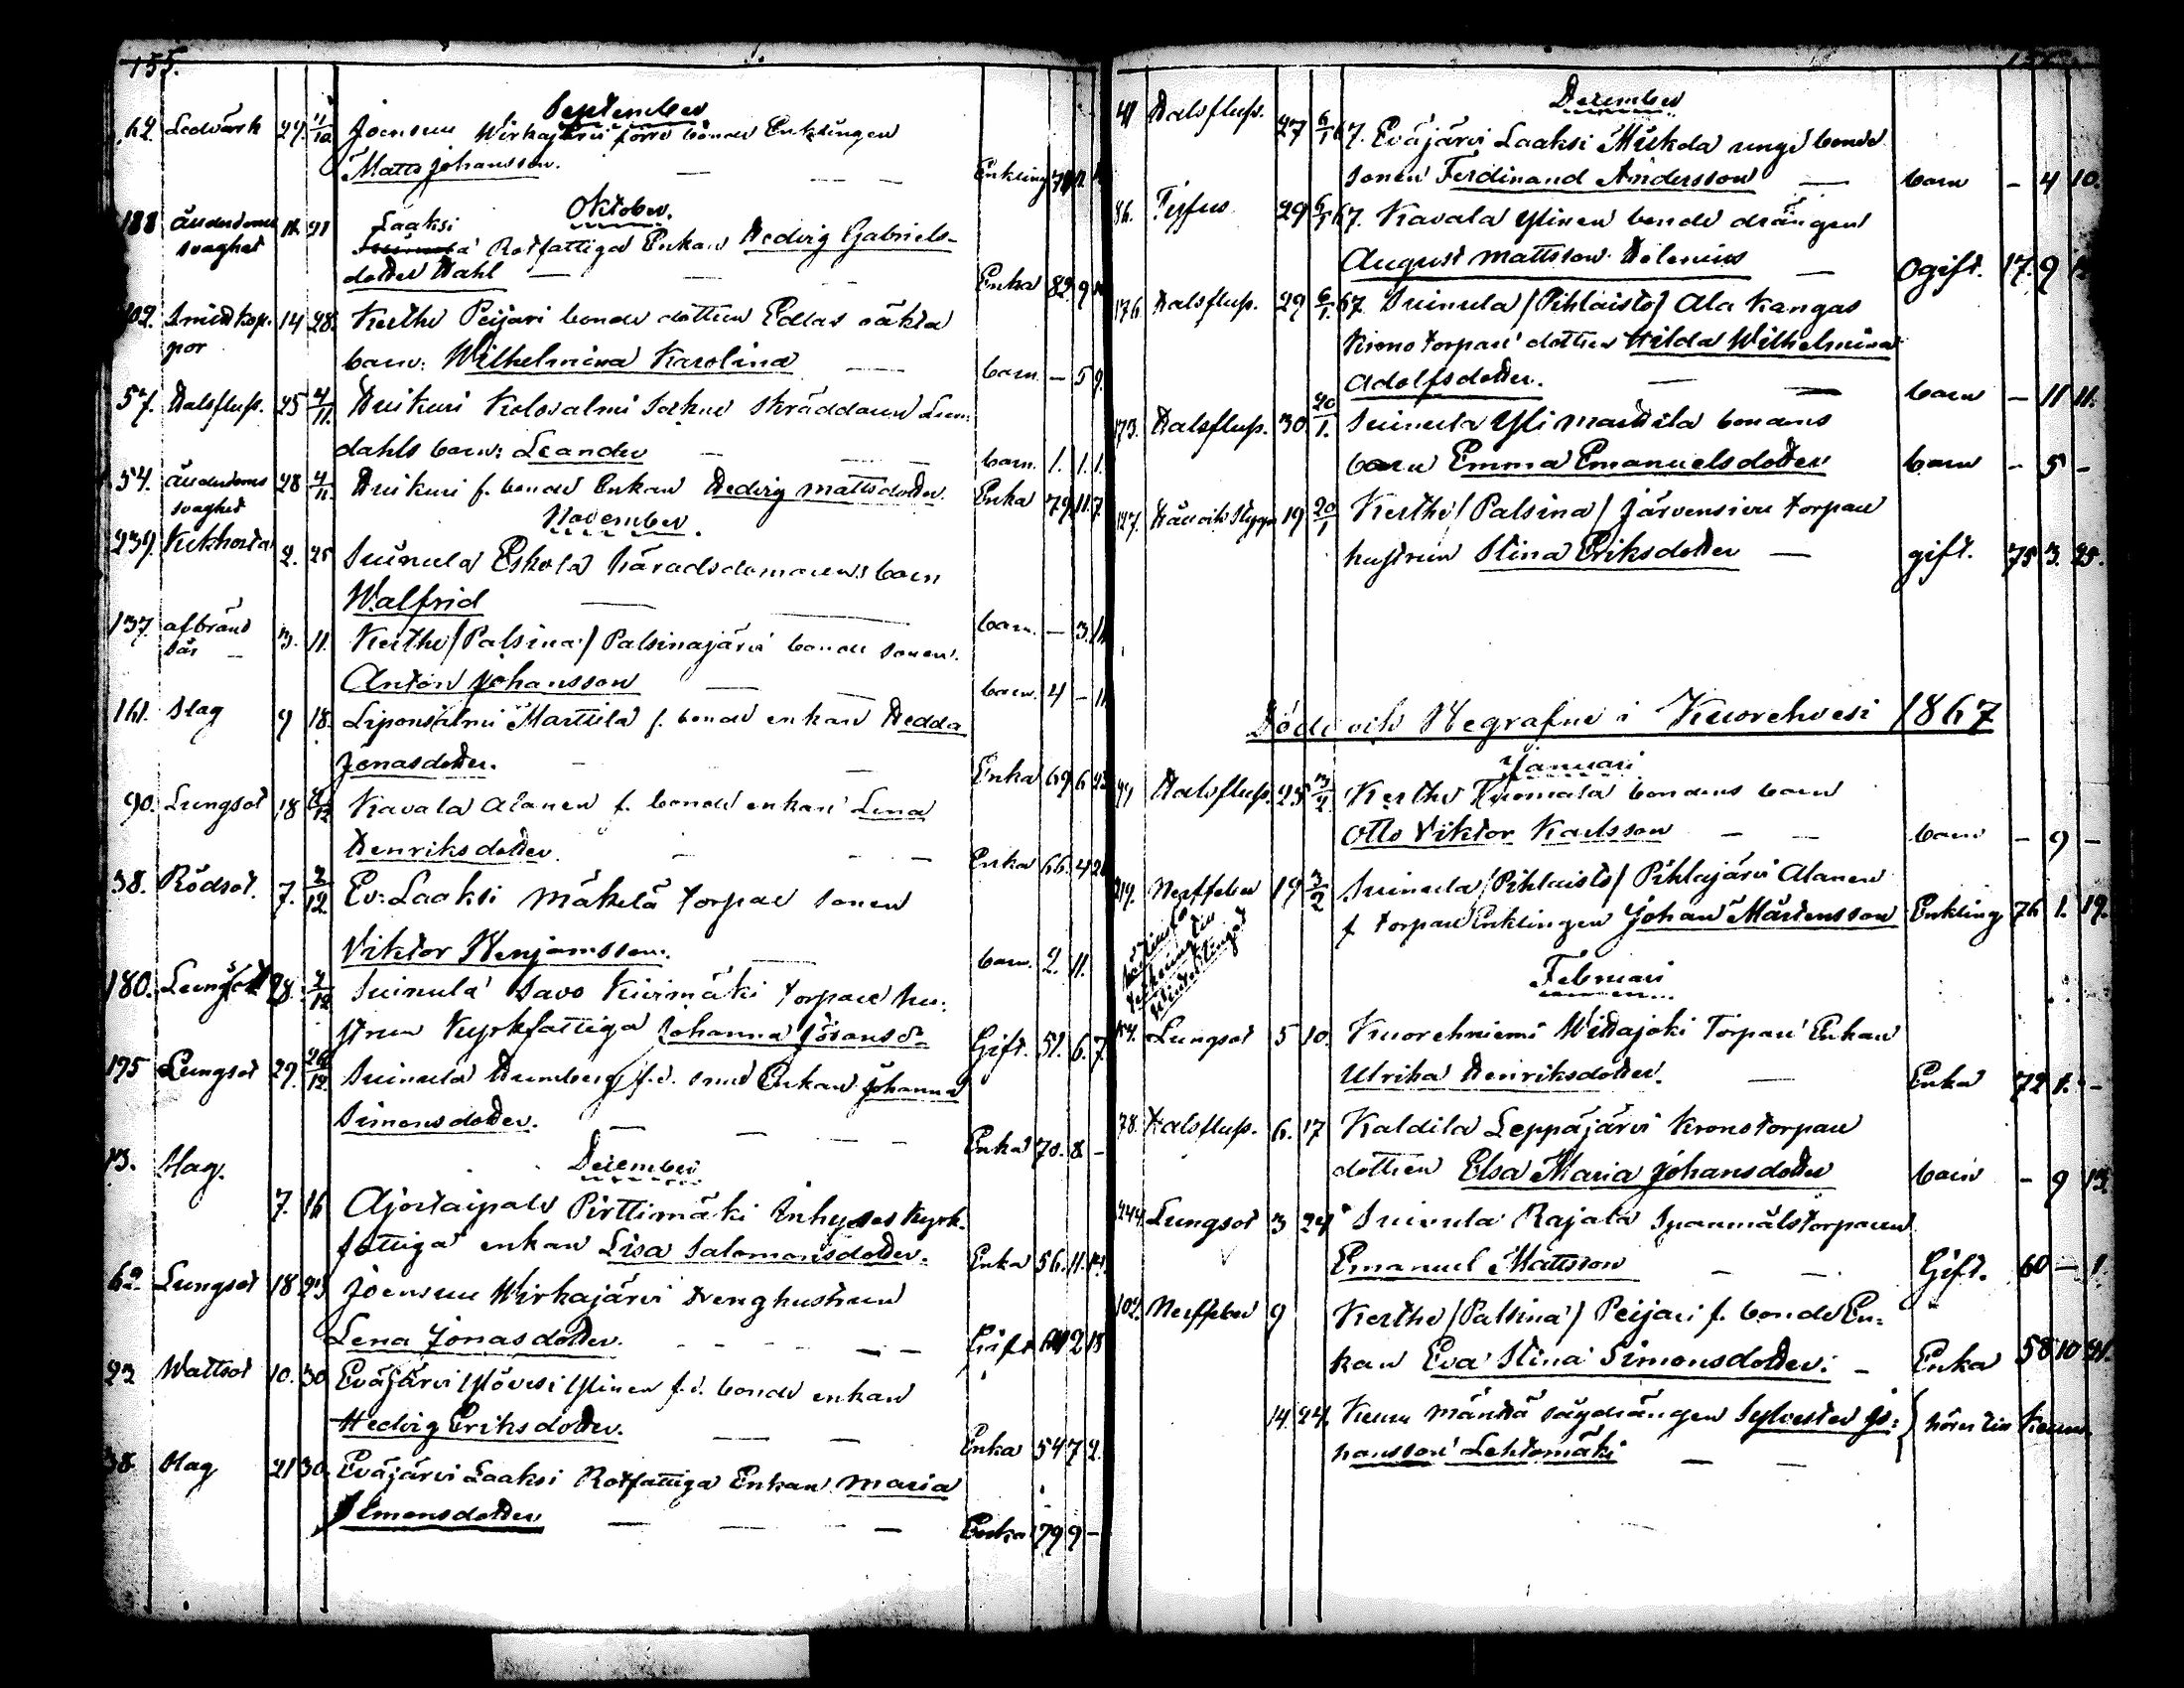 155.
September
62. Ledvärk 27. 11/10 Joensuu Wirkajärvi förre bonde Enklingen
Matts Johansson. — — — Enkling
Oktober.
188 ålderdoms 11. 21 Laaksi
svaghet Rotfattiga Enkan Hedvig Gabriels-
dotter Dahl — — Enka 82. 9
102. Smidkop- 14 28. Kerthe Peijari bonde dottren Eddas oäkta
por barn: Wilhelmina Karolina — barn. — 5 9.
57. Halsfluss. 25 4/11. Huikuri Kolosalmi Sockne skräddaren Lun-
dahls barn: Leander — — barn. 1. 1. 1.
54. ålderdoms 28 4/11 Huikuri f. bonde Enkan Hedvig Mattsdotter. Enka 79. 11. 7
svaghet
November.
239. Kikhosta 2. 25 Suinula Eskola häradsdomarens barn
Walfrid — — barn. — 3. 11
137. afbränd 3. 11. Kerthe /Palsina/ Palsinajärvi bonde sonen.
sår — Anton Johansson — — barn. 4 — 11
161. Slag 9 18. Liponsalmi Marttila f. bonde enkan Hedda
Jonasdotter. — — Enka 69 6
90. Lungsot 18 Kavala Alanen f. bonde enkan Lena
Henriksdotter. — — — Enka 66. 4
38. Rödsot. 7. 2/12. Ev: Laaksi Mäkelä torpare sonen
Viktor Benjamsson. — barn. 2. 11.
180. Lungsot 28. 2/12 Suinula Savo Kivimäki torpare hu-
strun Kyrkfattiga Johanna Göransd- Gift. 51. 6. 7
195 Lungsot 29. 26/12. Suinula Humberg f.d. smed Enkan Johanna
Simonsdotter. — — — Enka 70. 8 —
December
13. Slag. 7. 16 Ajostaipale Pirttimäki Inhyses Kyrk-
fattiga enkan Lisa Salomonsdotter. Enka 56. 11. 14.
62. Lungsot 18 23 Joensuu Wirkajärvi Drenghustrun
Lena Jonasdotter. — — — Gift 2 18
23 Wattsot 10. 30 Eväjärvi Ylövesi Ylinen f.d. bonde enkan
Hedvig Eriksdotter. — — Enka 54 7 2.
38. Slag 21 30. Eväjärvi Laaksi Rotfattiga Enkan Maria
Simonsdotter — — — Enka 79 9 —
December
41 Halsfluss. 27 6/1 67. Eväjärvi Laaksi Mickola unge bonde
sonen Ferdinand Andersson — barn — 4 10.
86. Tyfus 29 6/1 67. Kavala Ylinen bonde drängen
August Mattsson Helenius — Ogift. 17. 9
176. Halsfluss. 29 6/1. 67. Suinula /Pihlaisto/ Ala Kangas
Kronotorpare dottren Hilda Wilhelmina
Adolfsdotter. — — barn — 11 11.
173. Halsfluss. 30 20/1. Suinula Yli Marttila bondens
barn Emma Emanuelsdotter barn — 5 —
127. Håll och Stygn 19 20/1 Kerthe /Palsina/ Järvensivu torpare
hustrun Stina Eriksdotter — gift. 75 3. 25.
Döde och Begrafne i Kuorehvesi 1867
Januari
Halsfluss. 25 3/2 Kerthe Tuomala bondens barn
Otto Viktor Karlsson — — barn — 9 —
219. Nerffeber 19 3/2 Suinula /Pihlaisto/ Pihlajärvi Alanen
f torpare Enklingen Johan Mårtensson Enkling 76 1. 19.
Februari
Lungsot 5 10. Kuorehniemi Wittajoki Torpare Enkan
Ulrika Henriksdotter. — Enka 72 1. —
78. Halsfluss. 6. 17 Kaldila Leppäjärvi Kronotorpare
dottren Elsa Maria Johansdotter barn — 9 13.
244. Lungsot 3 24 Suinula Rajala Spanmålstorparen
Emanuel Mattsson — — Gift. 60 — 1.
102. Nerffeber 9 Kerthe /Palsina/ Peijari f. bonde En-
kan Eva Stina Simonsdotter. — Enka 58 10 21.
14. 24. Keuru Mänttä sågdrängen Sylvester Jo-
hansson Lehtomäki — — hörer till Keuru